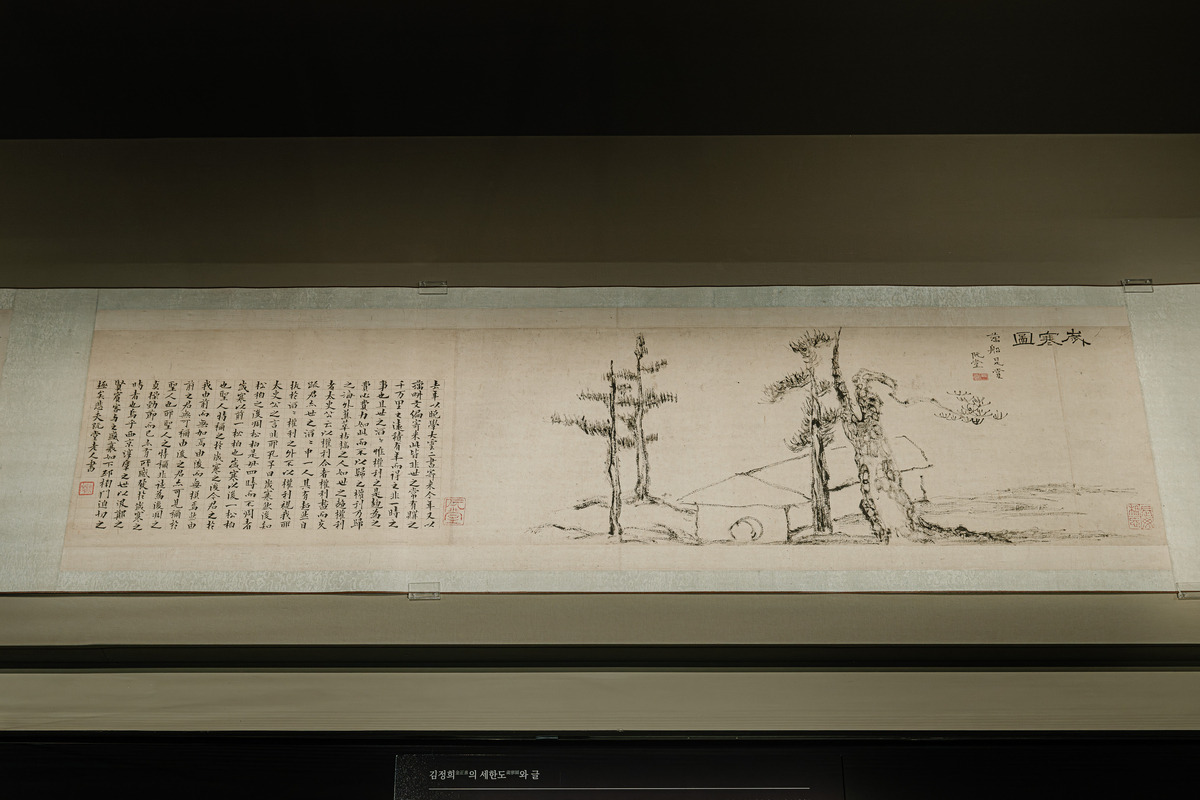 歲寒圖
藕船是賞
阮堂
去年以晚學大雲二書寄來今年又以
藕畊文編寄來此皆非世之常有購之
千万里之遠積有年而得之非一時之
事也且世之滔〻惟權利之是趨爲之
費心費力如此而不以歸之權利乃歸
之海外蕉萃枯槁之人如世之趨權利
者太史公云以權利合者權利盡而交
疎君亦世之滔〻中一人其有超然自
拔於滔〻權利之外不以權利視我耶
太史公之言非耶孔子曰歲寒然後知
松柏之後凋松柏是毋四時而不凋者
歲寒以前一松柏也歲寒以後一松柏
也聖人特稱之於歲寒之後今君之於
我由前而無加焉由後而無損焉然由
前之君無可稱由後之君亦可見稱於
聖人也耶聖人之特稱非徒爲後凋之
貞操勁節而已亦有所感發於歲寒之
時者也烏乎西京淳厚之世以汲鄭之
賢賓客與之盛衰如下邳榜門迫切之
極矣悲夫阮堂老人書
阮堂
김정희의 세한도와 글